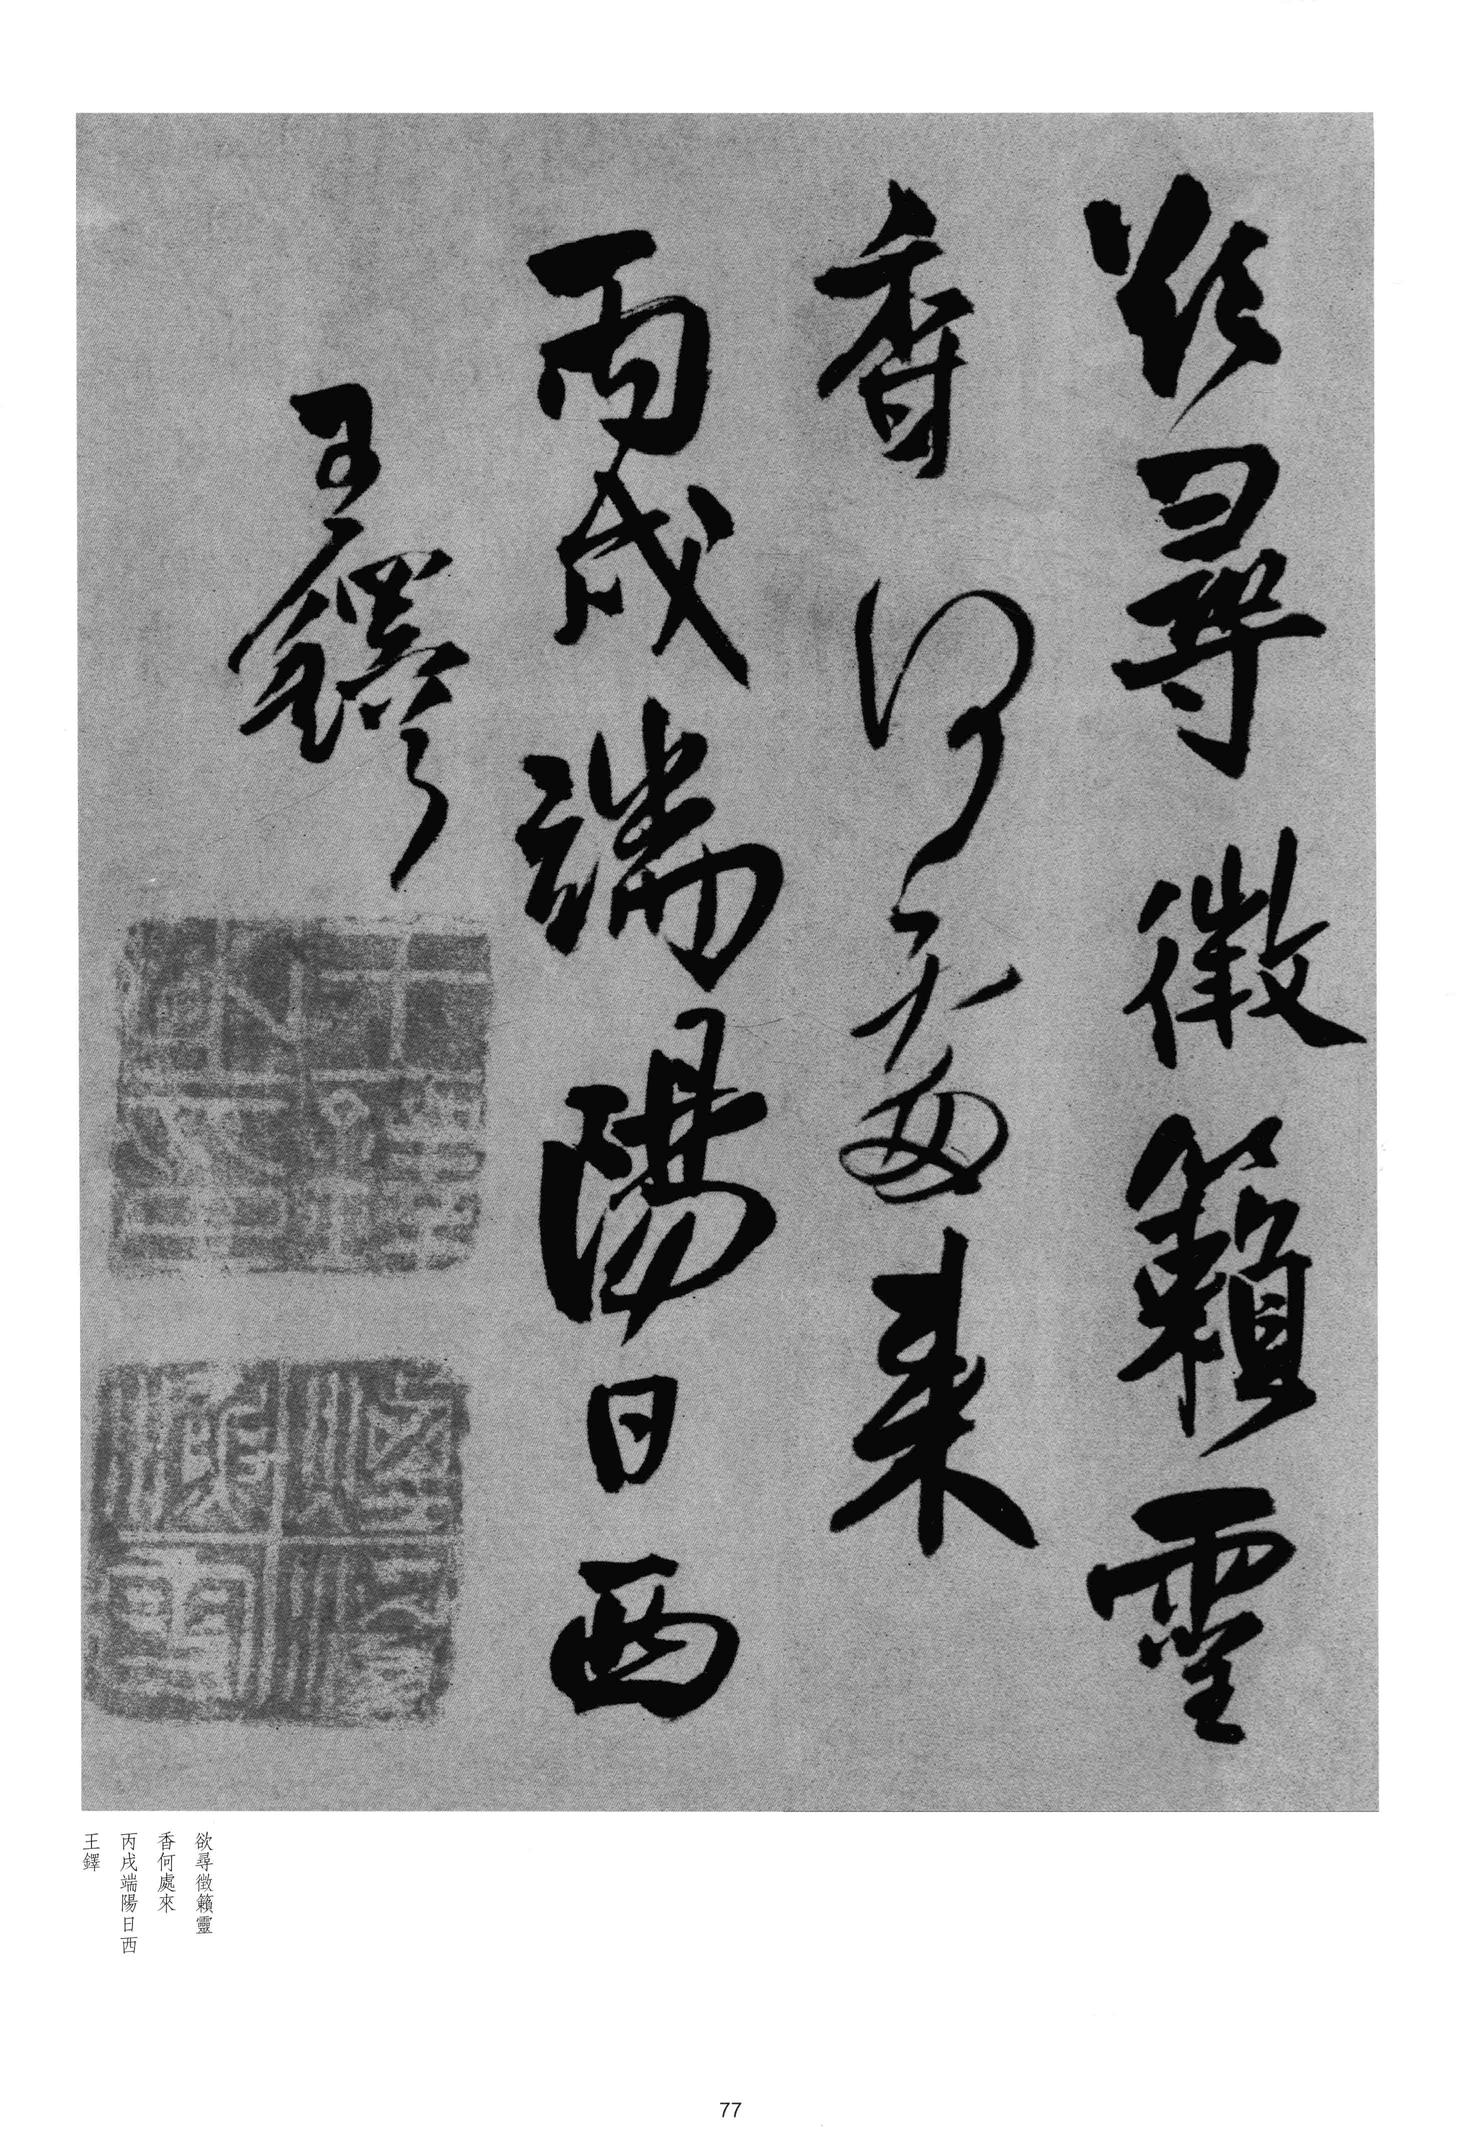 欲尋徴籟靈
香何處来
丙戌端陽日西
王鐸
欲尋徵籟靈
香何處來
丙戌端陽日西
王鐸
77